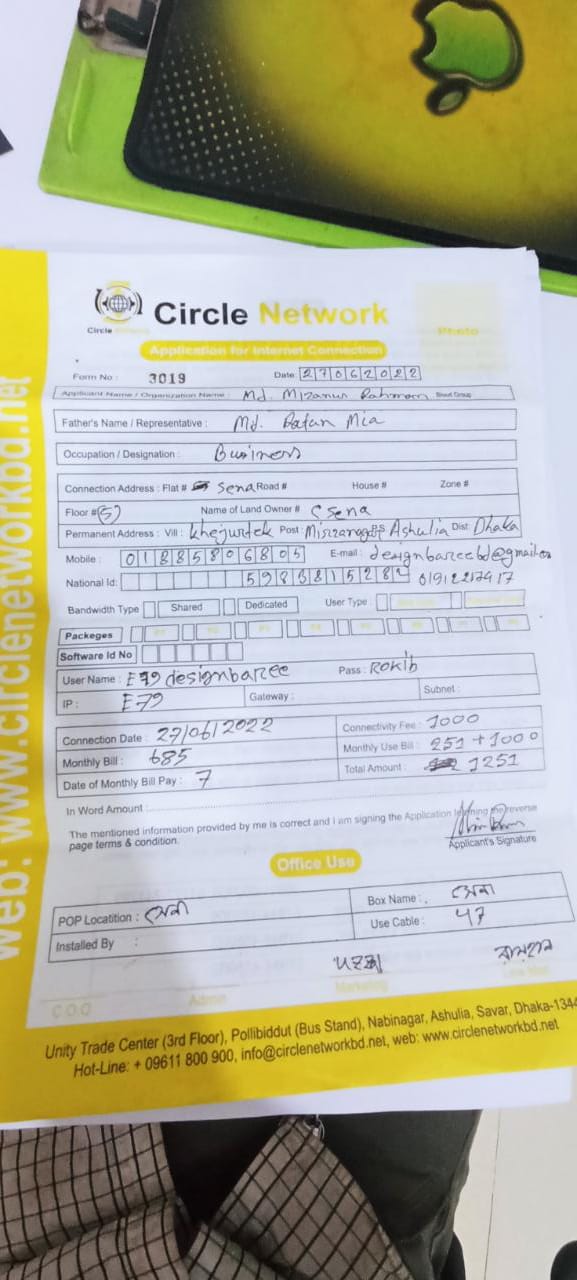 Circle Network
Circle
Photo
Application for Internet Connection
Form No : 3019 Date 27062022
Applicant Name / Organization Name : Md. Mizanur Rahman
Father's Name / Representative : Md. Ratan Mia
Occupation / Designation : Business
Connection Address : Flat # Sena Road # House # Zone #
Floor # (5) Name of Land Owner # Csena
Permanent Address : Vill : Khejurtek Post : Ashulia Dist: Dhaka
Mobile : 01885806805 E-mail : designbareebd@gmail.com
National Id:
Bandwidth Type Shared Dedicated User Type :
Packeges
Software Id No
User Name : E79 designbaree Pass : Rokib
IP : E79 Gateway : Subnet :
Connection Date : 27/06/2022 Connectivity Fee : 1000
Monthly Bill : 685 Monthly Use Bill : 251 + 1000
Date of Monthly Bill Pay : 7 Total Amount : 1251
In Word Amount :
The mentioned information provided by me is correct and I am signing the Application the reverse
page terms & condition.
Applicant's Signature
Office Use
POP Locatition : সেনা Box Name : সেনা
Installed By : Use Cable : 47
C.O.O Admin Marketing
Unity Trade Center (3rd Floor), Pollibiddut (Bus Stand), Nabinagar, Ashulia, Savar, Dhaka-1344
Hot-Line: + 09611 800 900, info@circlenetworkbd.net, web: www.circlenetworkbd.net
web: www.circlenetworkbd.net